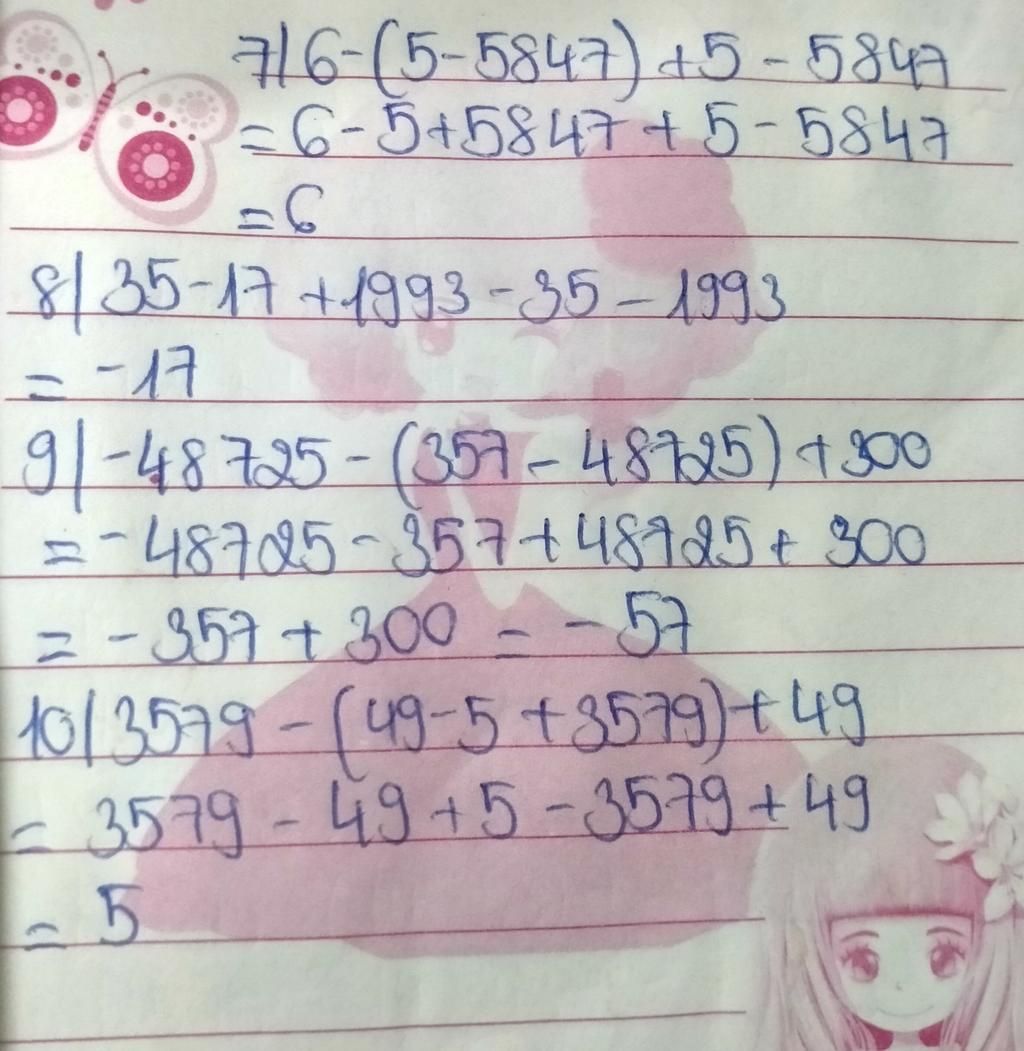 7| 6-(5-5847)+5-5847
=6-5+5847+5-5847
=6
8| 35-17+1993-35-1993
= -17
9| -48725-(357-48725)+300
= -48725-357+48725+300
= -357+300 = -57
10| 3579-(49-5+3579)+49
= 3579-49+5-3579+49
= 5